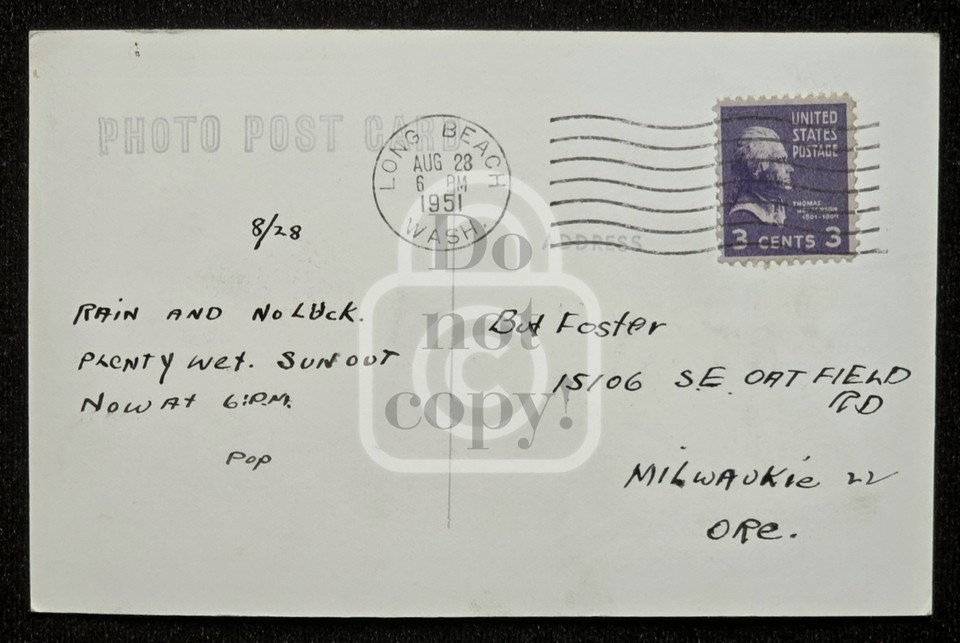 PHOTO POST CARD
LONG BEACH
AUG 28
6 PM
1951
WASH.
UNITED
STATES
POSTAGE
THOMAS
JEFFERSON
3 CENTS 3
ADDRESS
8/28
RAIN AND NO LUCK.
PLENTY WET. SUN OUT
NOW AT 6:P.M.
Pop
Foster
15106 S.E. OATFIELD
RD
MILWAUKIE 22
ORE.
Do
not
copy!